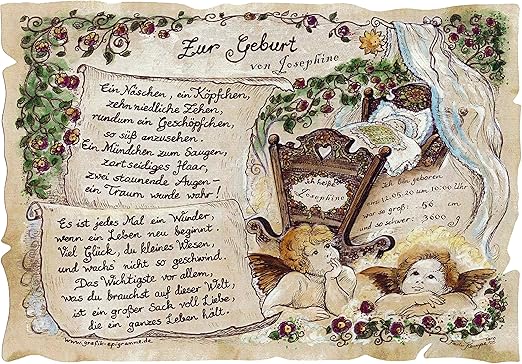 Zur Geburt
von Josephine
Ein Näschen, ein Köpfchen,
zehn niedliche Zehen,
rundum ein Geschöpfchen,
so süß anzusehen.
Ein Mündchen zum Saugen,
zartseidiges Haar,
zwei staunende Augen –
ein Traum wurde wahr!
Es ist jedes Mal ein Wunder,
wenn ein Leben neu beginnt.
Viel Glück, du kleines Wesen,
und wachs nicht so geschwind.
Das Wichtigste vor allem,
was du brauchst auf dieser Welt,
ist ein großer Sack voll Liebe,
die ein ganzes Leben hält.
www.grafik-epigramme.de
Ich heiße
Josephine
Ich bin geboren
am 12.05.20 um 10:00 Uhr
war so groß: 56 cm
und so schwer: 3600 g